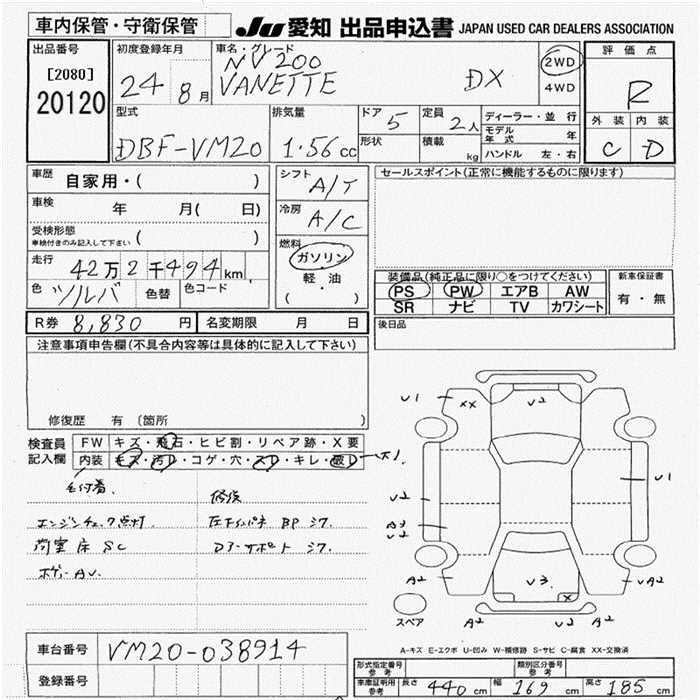 車内保管・守衛保管
JU 愛知 出品申込書 JAPAN USED CAR DEALERS ASSOCIATION
出品番号
[2080]
20120
初度登録年月
24 8月
車名・グレード
NV200
VANETTE DX
2WD
4WD
評価点
R
外装 内装
C D
型式
DBF-VM20
排気量
1.56cc
ドア 5
形状
定員 2人
積載 kg
ディーラー・並行
モデル年式 年
ハンドル 左・右
車歴 自家用・( )
車検 年 月( 日)
受検形態
車検付きのみ記入して下さい ( )
走行 42万2千494km
色 シルバ 色替 色コード
シフト A/T
冷房 A/C
燃料
ガソリン
軽・油
( )
セールスポイント(正常に機能するものに限ります)
装備品(純正品に限り○をつけてください)
PS PW エアB AW
SR ナビ TV カワシート
新車保証書
有・無
R券 8,830円 名変期限 月 日
後日品
注意事項申告欄(不具合内容等は具体的に記入して下さい)
修復歴 有 〔箇所 〕
検査員記入欄
FW キズ・飛石・ヒビ割・リペア跡・X要
内装 キズ・汚レ・コゲ・穴・スレ・キレ・破レ
毛付着、 修復
エンジンチェック点灯、 左インパネ BP シワ、
荷室床 SC Dフーサポート シワ、
ボディーAU、
U1 XX U2
U2 U1
B3
U2
A2 U3 X UA2
A2 U2 A2
スペア
A-キズ E-エクボ U-凹み W-補修跡 S-サビ C-腐食 XX-交換済
車台番号 VM20-038914
登録番号
形式指定番号 参考 類別区分番号 参考
車庫証明用 参考 長さ 440cm 幅 169cm 高さ 185cm